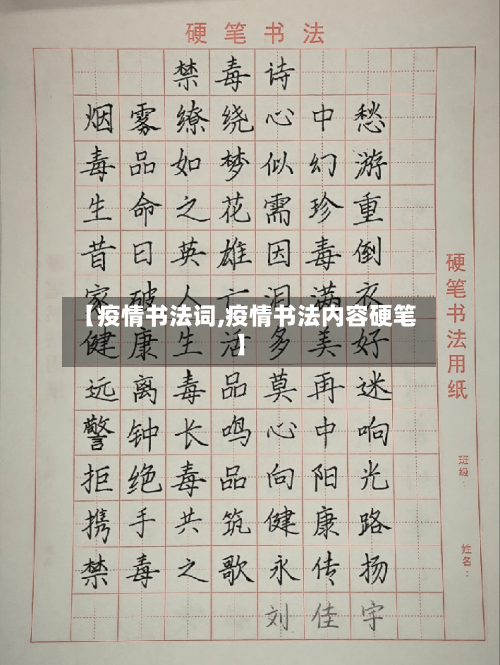 硬笔书法
禁毒诗
烟雾缭绕心中愁
毒品如梦似幻游
生命之花需珍重
昔日英雄因毒倒
家破人亡泪满衣
【疫情书法词,疫情书法内容硬笔
】
健康生活多美好
远离毒品莫再迷
警钟长鸣心中响
拒绝毒品向阳光
携手共筑健康路
禁毒之歌永传扬
刘佳宇
硬笔书法用纸
班级:
姓名: